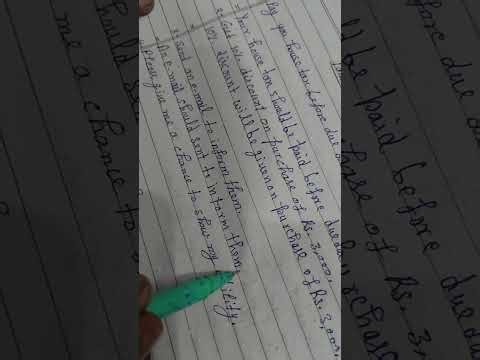 Pay you house tax before due
Your house tax should be paid before due
Get 10% discount on purchase of Rs. 3,000.
10% discount will be given on purchase of Rs. 3,000.
Sent an e-mail to inform them.
An e-mail should sent to inform them
Please give me a chance to show my ability.